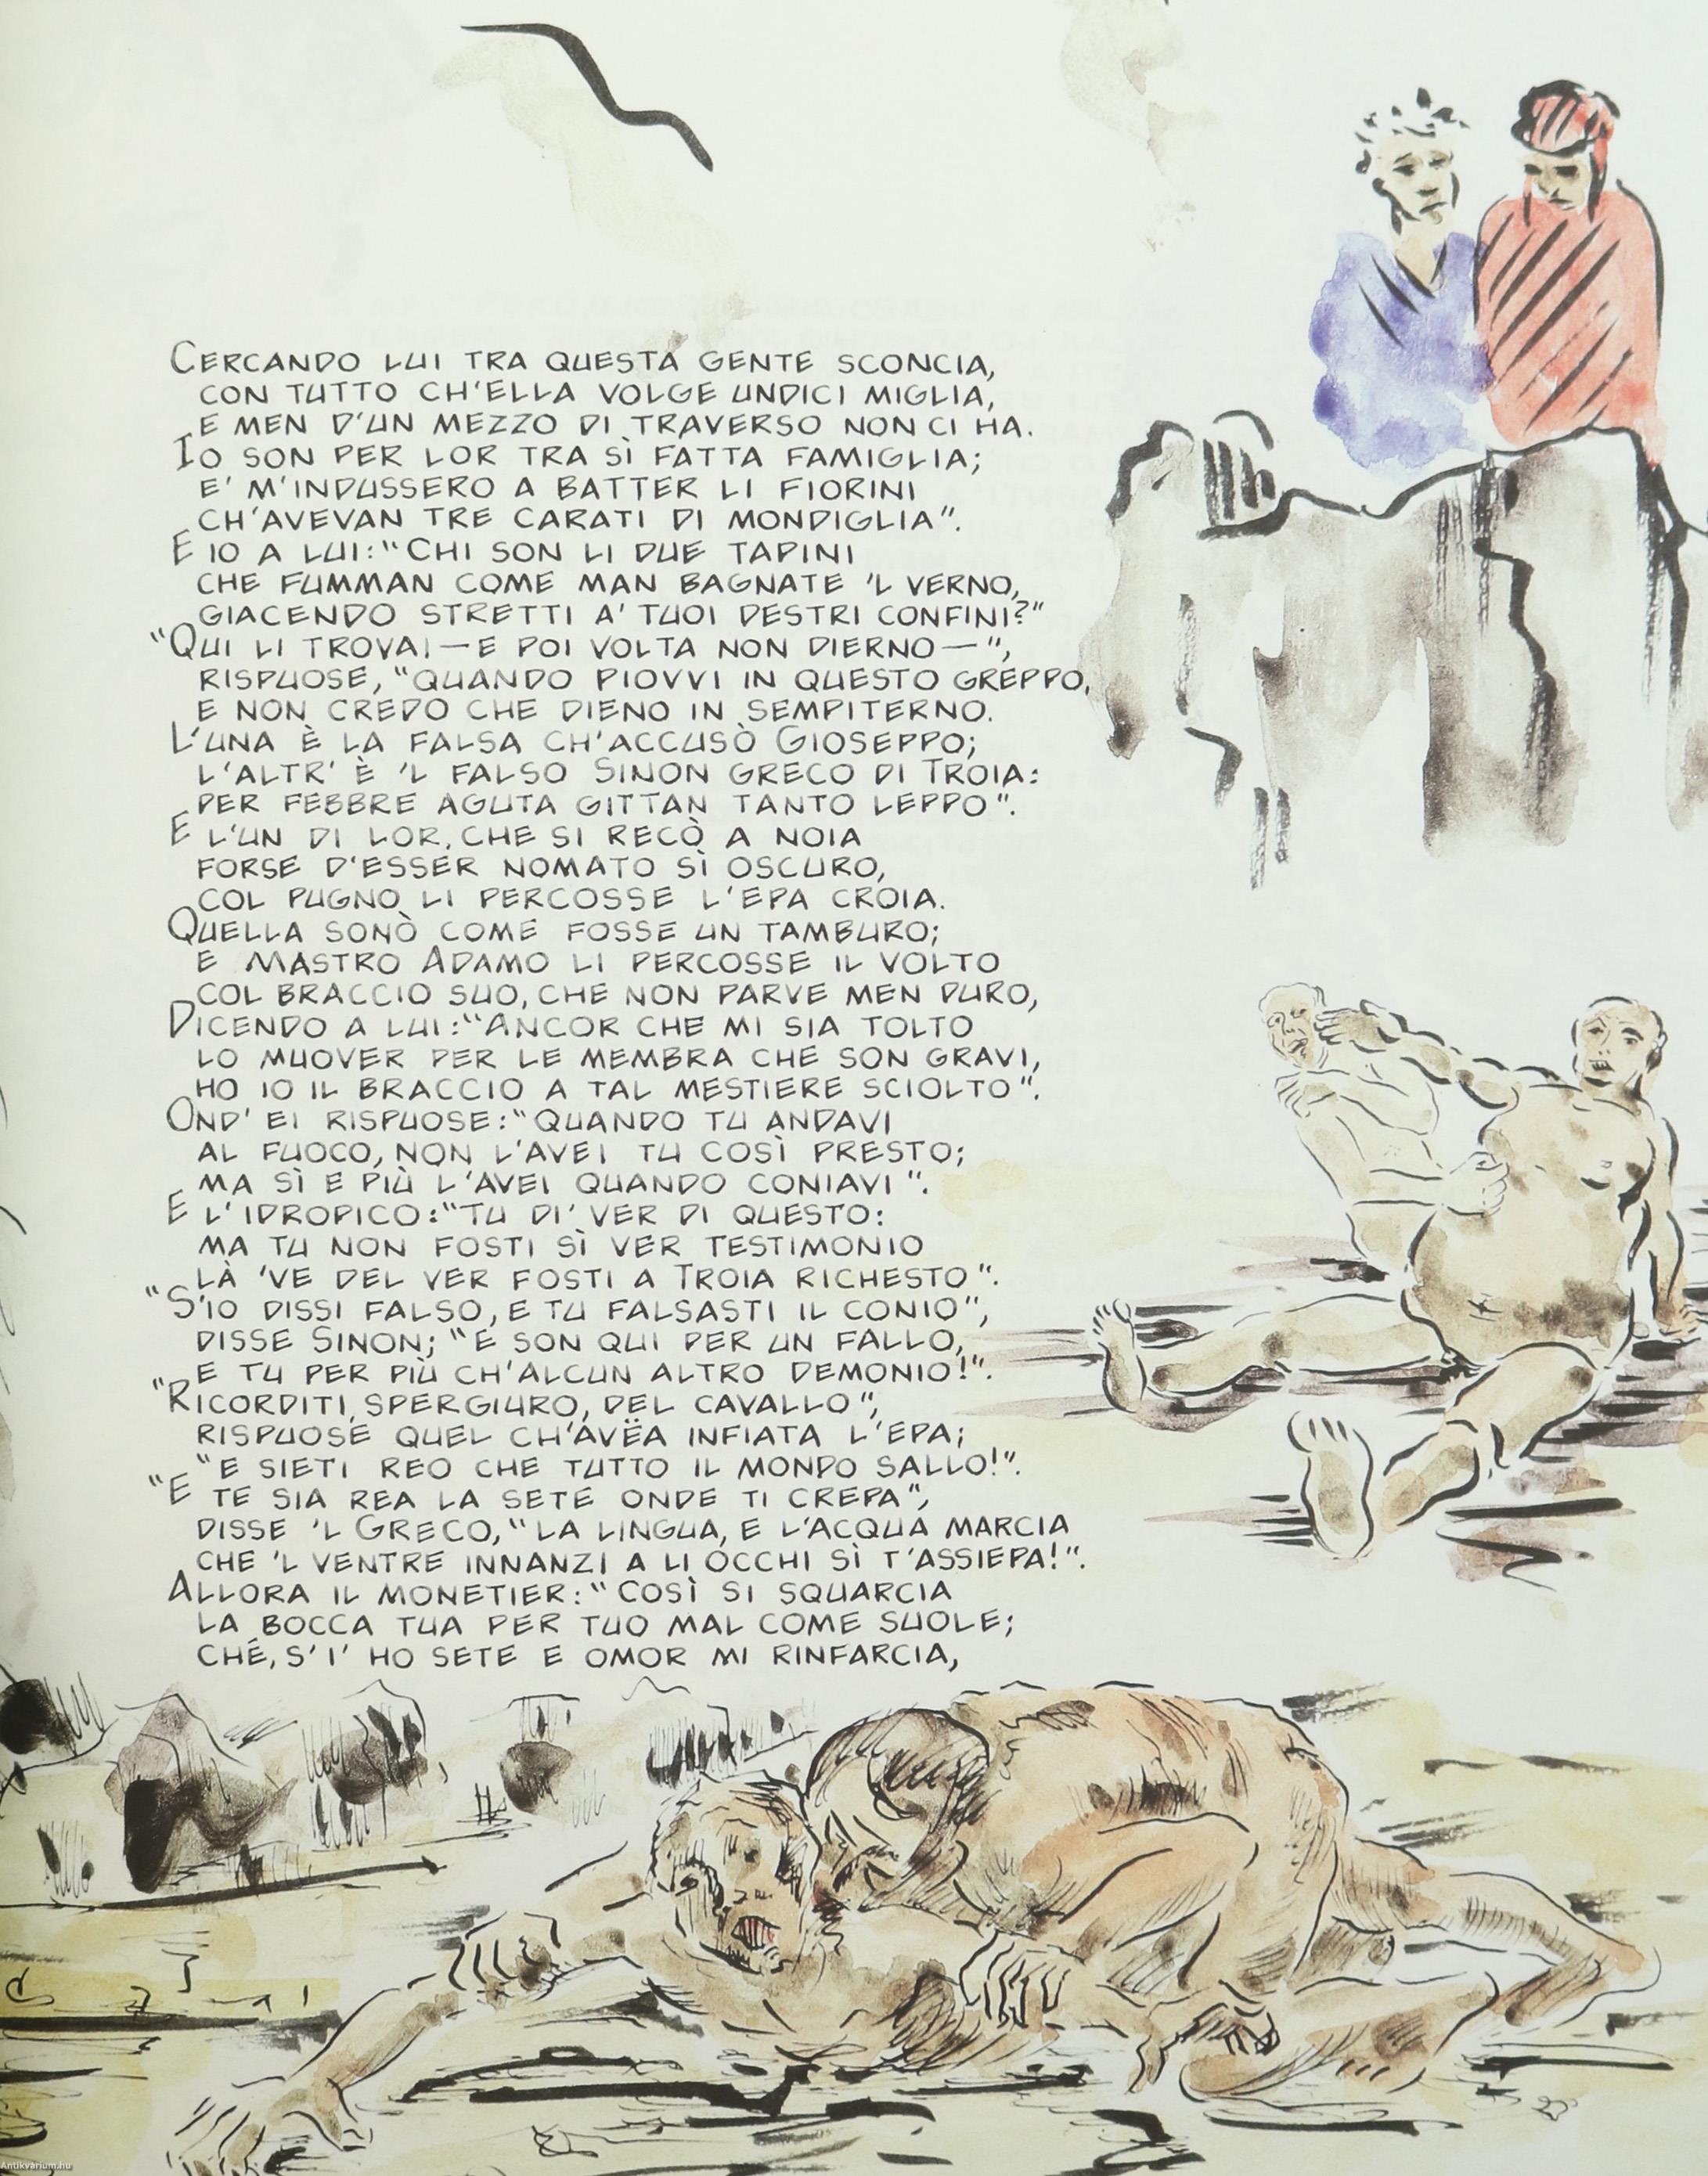 CERCANDO LUI TRA QUESTA GENTE SCONCIA,
CON TUTTO CH'ELLA VOLGE UNDICI MIGLIA,
E MEN D'UN MEZZO DI TRAVERSO NON CI HA.
IO SON PER LOR TRA SÌ FATTA FAMIGLIA;
E' M'INDUSSERO A BATTER LI FIORINI
CH'AVEVAN TRE CARATI DI MONDIGLIA".
E IO A LUI: "CHI SON LI DUE TAPINI
CHE FUMMAN COME MAN BAGNATE 'L VERNO,
GIACENDO STRETTI A' TUOI DESTRI CONFINI?"
"QUI LI TROVAI — E POI VOLTA NON DIERNO —",
RISPUOSE, "QUANDO PIOVVI IN QUESTO GREPPO,
E NON CREDO CHE DIENO IN SEMPITERNO.
L'UNA È LA FALSA CH'ACCUSÒ GIOSEPPO;
L'ALTR' È 'L FALSO SINON GRECO DI TROIA:
PER FEBBRE AGUTA GITTAN TANTO LEPPO".
E L'UN DI LOR, CHE SI RECÒ A NOIA
FORSE D'ESSER NOMATO SÌ OSCURO,
COL PUGNO LI PERCOSSE L'EPA CROIA.
QUELLA SONÒ COME FOSSE UN TAMBURO;
E MASTRO ADAMO LI PERCOSSE IL VOLTO
COL BRACCIO SUO, CHE NON PARVE MEN DURO,
DICENDO A LUI: "ANCOR CHE MI SIA TOLTO
LO MUOVER PER LE MEMBRA CHE SON GRAVI,
HO IO IL BRACCIO A TAL MESTIERE SCIOLTO".
OND' EI RISPUOSE: "QUANDO TU ANDAVI
AL FUOCO, NON L'AVEI TU COSÌ PRESTO;
MA SÌ E PIÙ L'AVEI QUANDO CONIAVI".
E L'IDROPICO: "TU DI' VER DI QUESTO:
MA TU NON FOSTI SÌ VER TESTIMONIO
LÀ 'VE DEL VER FOSTI A TROIA RICHESTO".
"S'IO DISSI FALSO, E TU FALSASTI IL CONIO",
DISSE SINON; "E SON QUI PER UN FALLO,
E TU PER PIÙ CH'ALCUN ALTRO DEMONIO!".
"RICORDITI, SPERGIURO, DEL CAVALLO",
RISPUOSE QUEL CH'AVËA INFIATA L'EPA;
"E SIETI REO CHE TUTTO IL MONDO SALLO!".
"E TE SIA REA LA SETE ONDE TI CREPA",
DISSE 'L GRECO, "LA LINGUA, E L'ACQUA MARCIA
CHE 'L VENTRE INNANZI A LI OCCHI SÌ T'ASSIEPA!".
ALLORA IL MONETIER: "COSÌ SI SQUARCIA
LA BOCCA TUA PER TUO MAL COME SUOLE;
CHÉ, S'I' HO SETE E OMOR MI RINFARCIA,
Antikvarium.hu